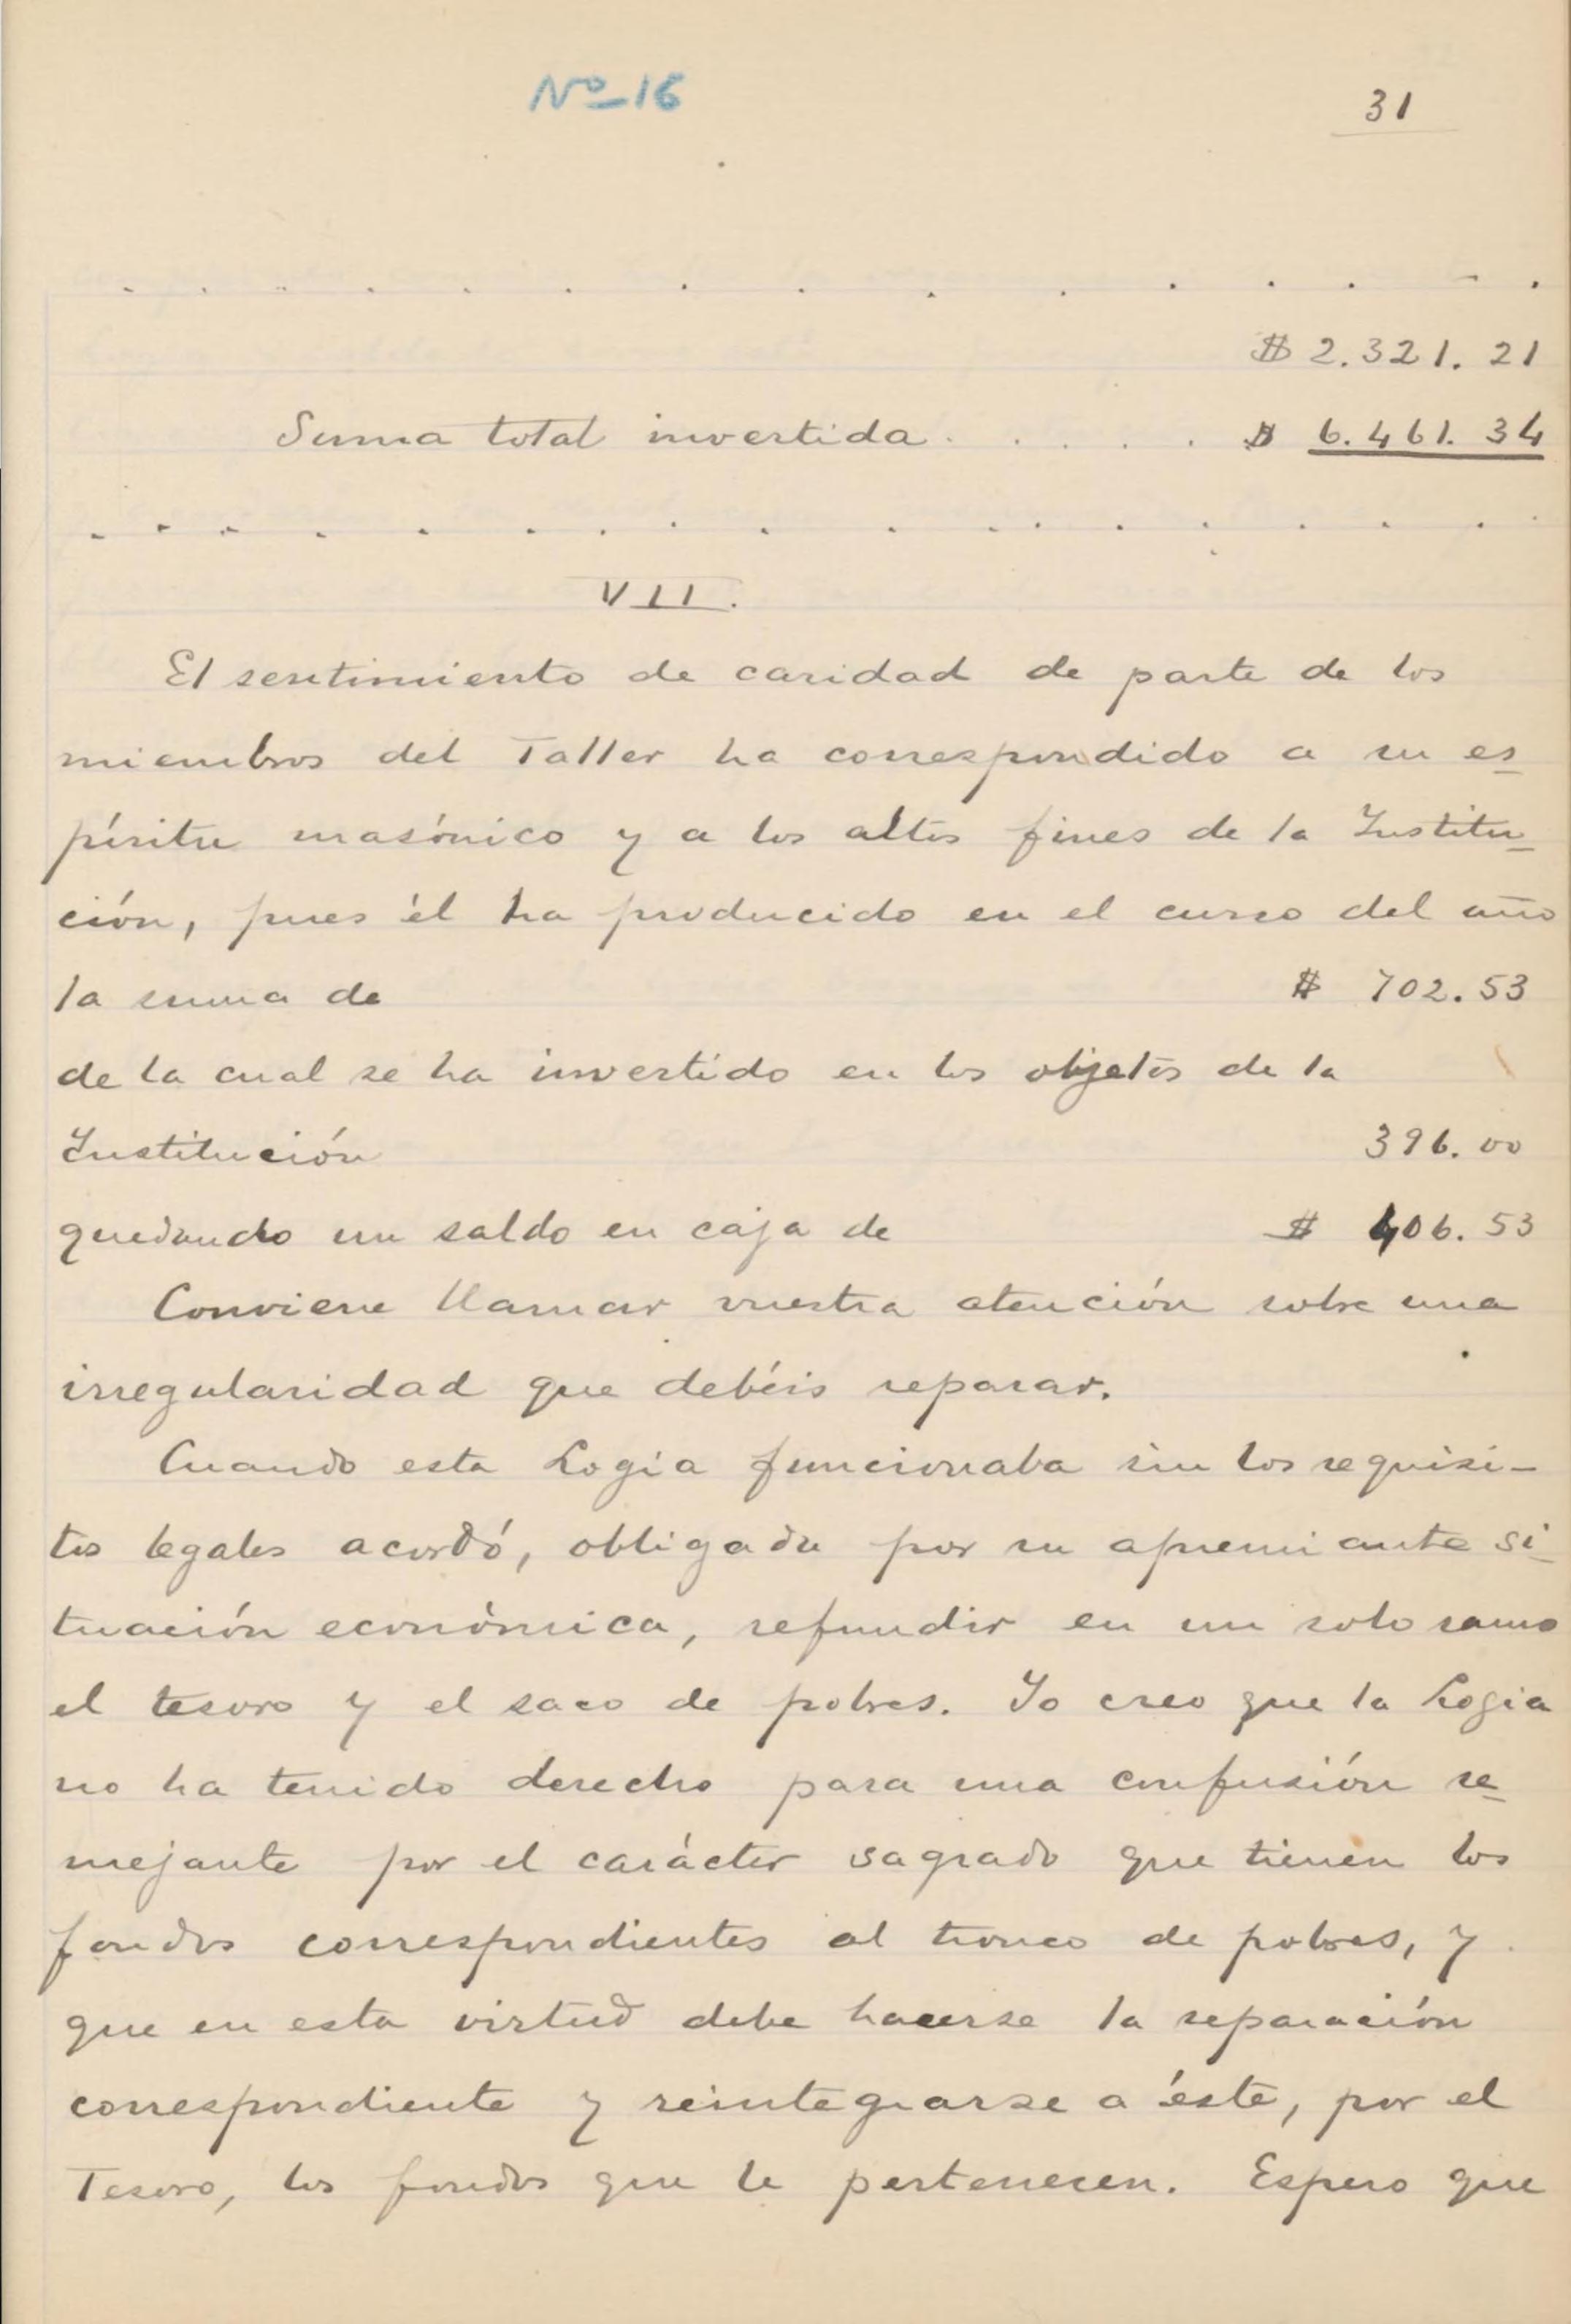 Nº 16
31
. . . . . . . . . . . . . . .
$ 2.321.21
Suma total invertida. . . . . $ 6.461.34
. . . . . . . . . . . . . . . . .
VII.
El sentimiento de caridad de parte de los
miembros del Taller ha correspondido a su es-
píritu masónico y a los altos fines de la Institu-
ción, pues él ha producido en el curso del año
la suma de $ 702.53
de la cual se ha invertido en los objetos de la
Institución 396.00
quedando un saldo en caja de $ 406.53
Conviene llamar vuestra atención sobre una
irregularidad que debéis reparar.
Cuando esta Logia funcionaba sin los requisi-
tos legales acordó, obligada por su apremiante si-
tuación económica, refundir en un solo ramo
el tesoro y el saco de pobres. Yo creo que la Logia
no ha tenido derecho para una confusión se-
mejante por el carácter sagrado que tienen los
fondos correspondientes al tronco de pobres, y
que en esta virtud debe hacerse la separación
correspondiente y reintegrarse a éste, por el
Tesoro, los fondos que le pertenecen. Espero que